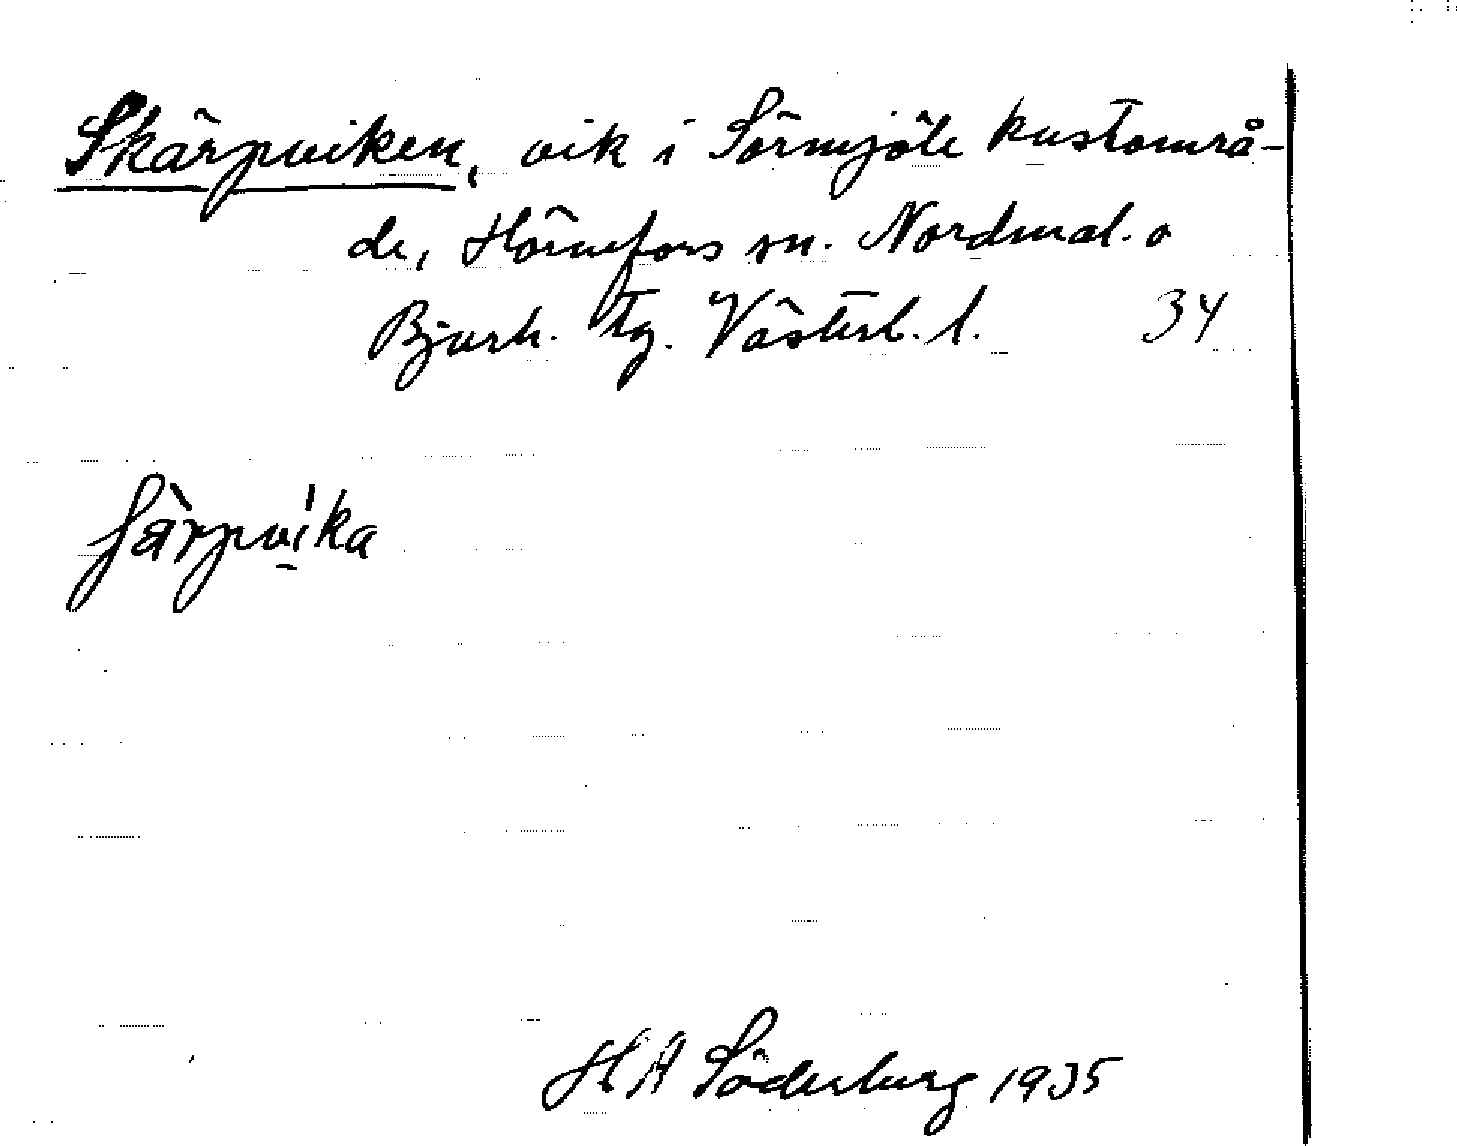 Skärpviken, vik i Sörmjöle kustområ-
de, Hörnefors sn. Nordmal. o
Bjurh. tg. Västerb. l. 34
ʃàrpvíka
H A Söderburg 1935